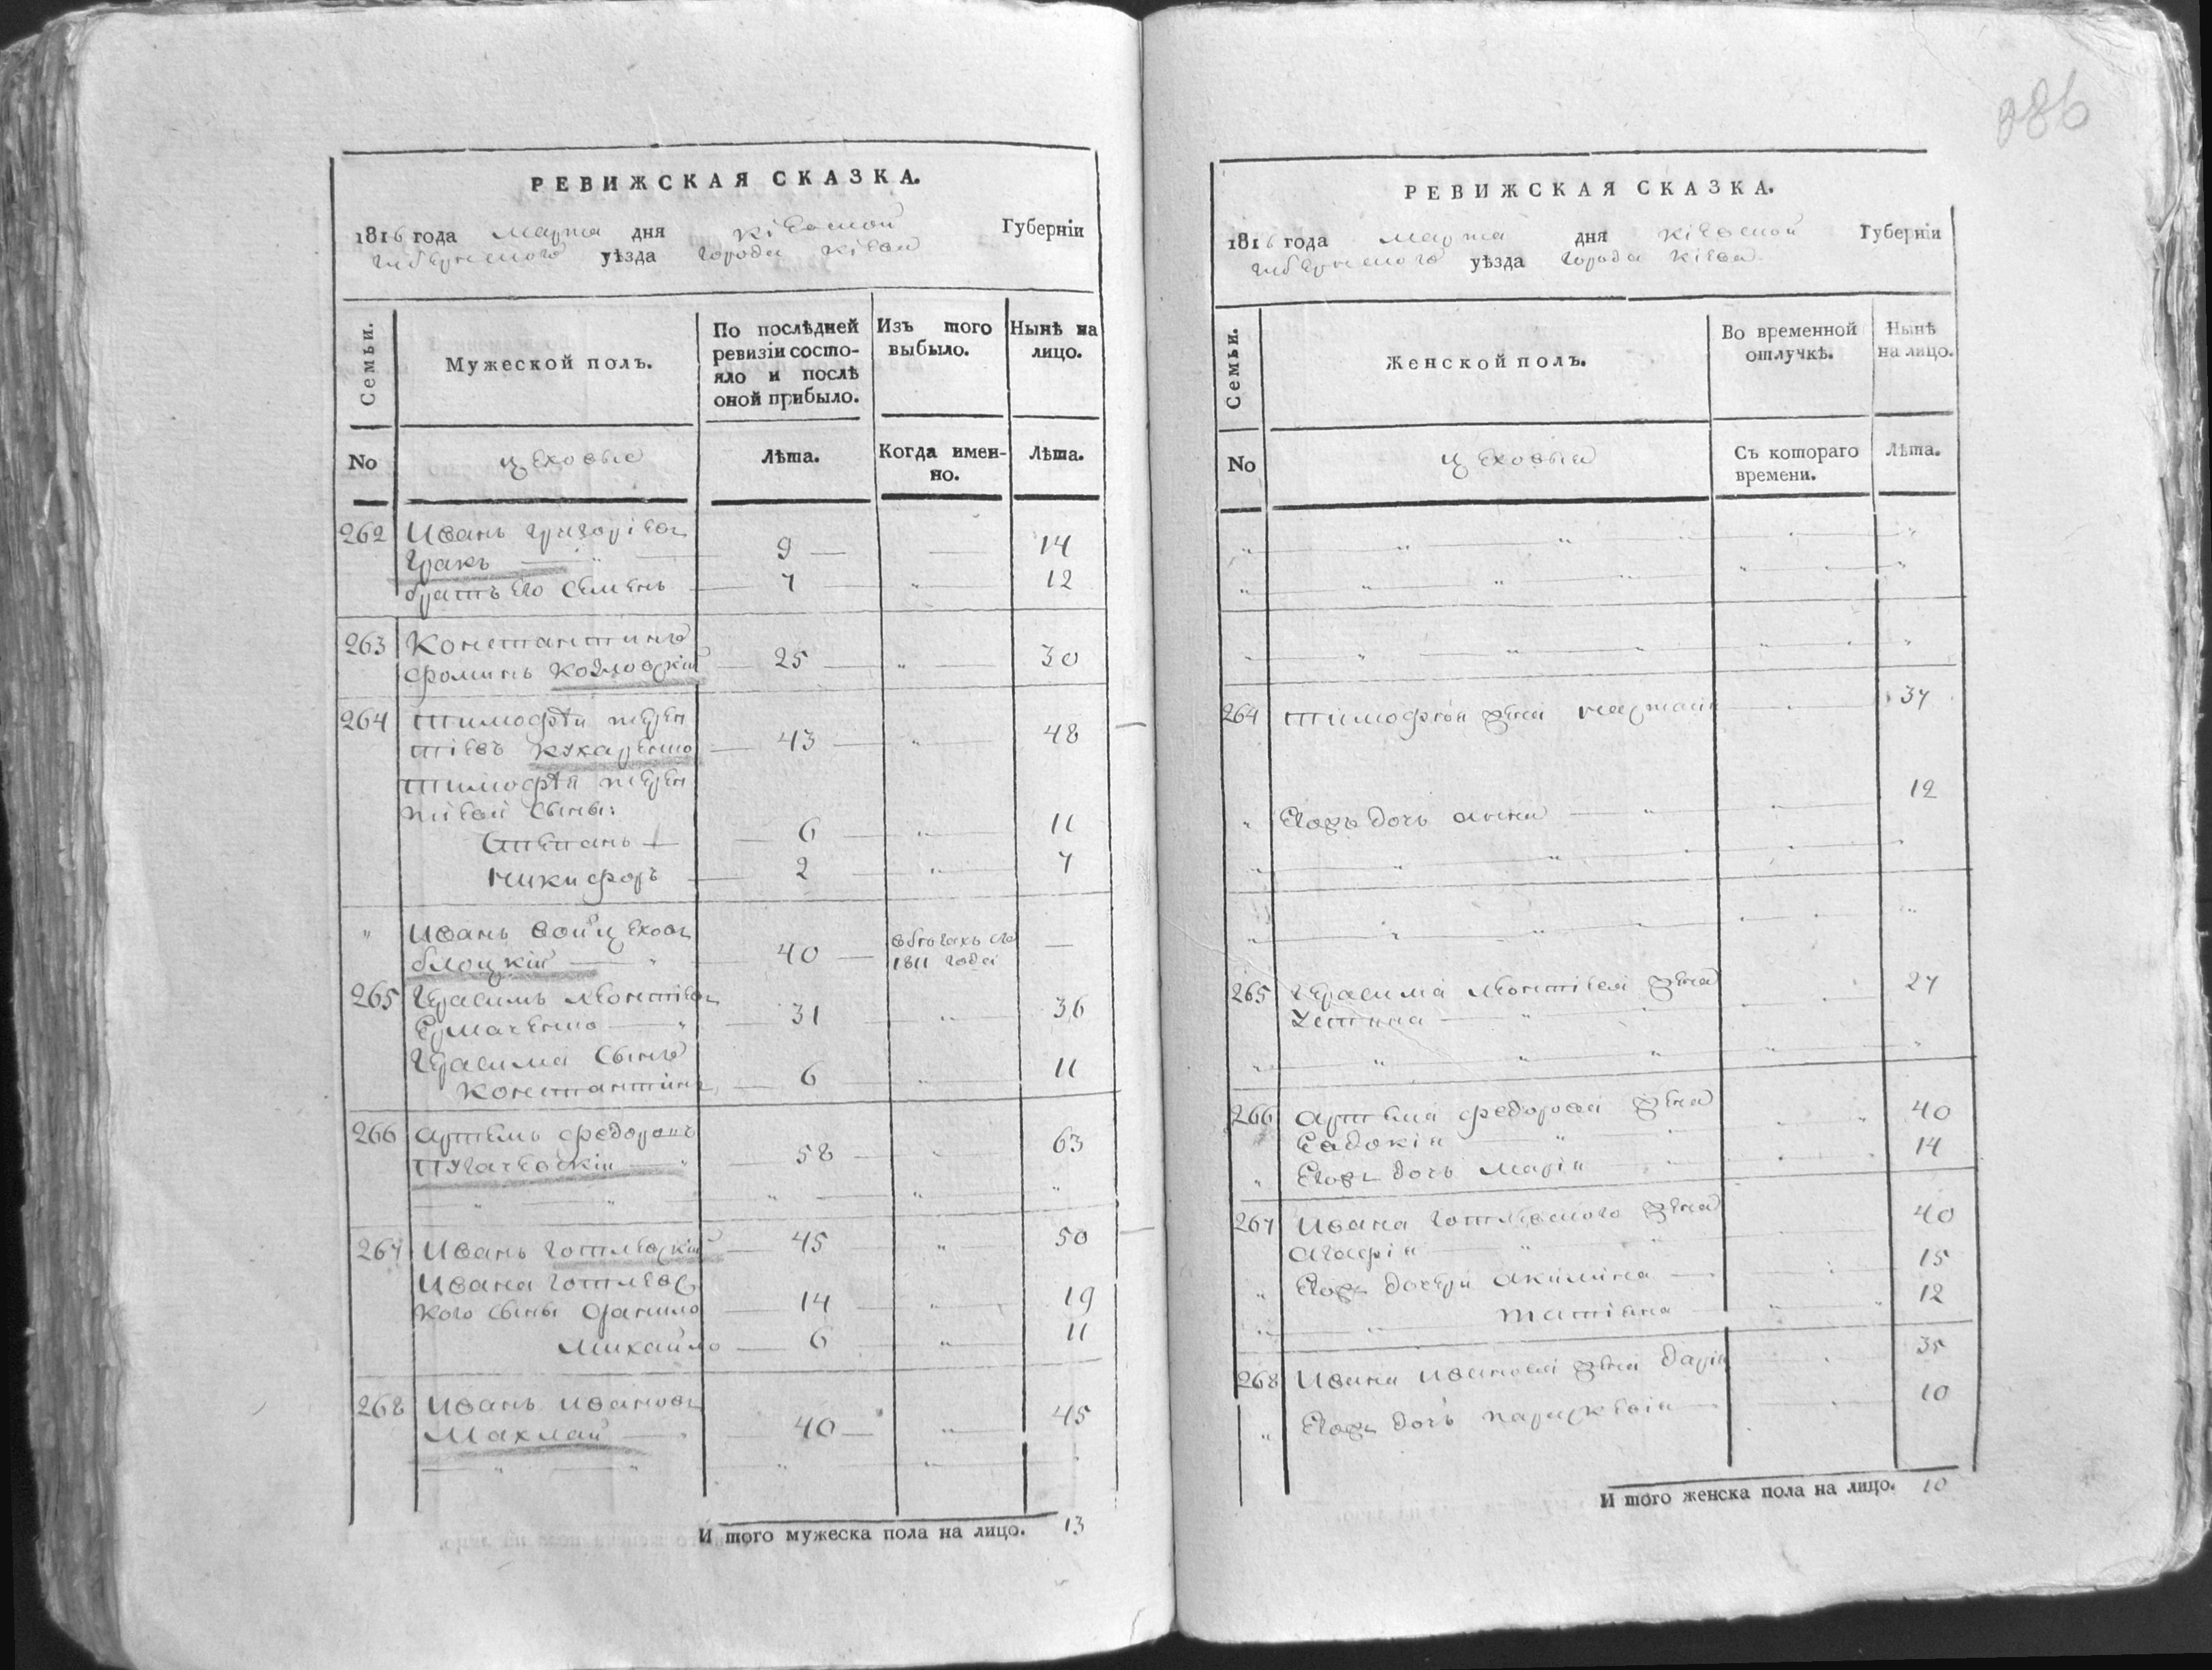 286
РЕВИЖСКАЯ СКАЗКА.
1816 года марта дня Кіевской Губерніи
уѣзда города Кіева
Семьи.
Мужеской полъ.
По послѣдней ревизіи состо-
яло и послѣ
оной прибыло.
Изъ того
выбыло.
Нынѣ на
лицо.
No
цеховые
Лѣта.
Когда имен-
но.
Лѣта.
262 Иванъ Григоріевъ
Гракъ 9 14
братъ его Семенъ 7 12
263 Константинъ
Фоминъ Козловскій 25 " 30
264 Тимофѣй Терен
тіевъ Кухаренко 43 " 48
Тимофѣя Терен
тіева сыны:
Степанъ 6 " 11
Никифоръ 2 " 7
" Иванъ Войцеховъ
Блоцкій 40 в бѣгахъ съ —
1811 года
265 Герасимъ Леонтіевъ
Ермаченко 31 " 36
Герасима сынъ
Константинъ 6 " 11
266 Артемъ Федоровъ
58 " 63
267 Иванъ Готлевскій 45 " 50
Ивана Готлевс
кого сыны Данило 14 " 19
Михайло 6 " 11
268 Иванъ Ивановъ
Махлай 40 " 45
И того мужеска пола на лицо. 13
РЕВИЖСКАЯ СКАЗКА.
1816 года марта дня Кіевской Губерніи
уѣзда города Кіева
Семьи.
Женской полъ.
Во временной
отлучкѣ.
Нынѣ
на лицо.
No
цеховыя
Съ котораго
времени.
Лѣта.
264 Тимофѣя жена 37
" Егожъ дочь Анна 12
265 Герасима Леонтіева жена 27
Устина
266 Артема Федорова жена
Евдокія 40
" Егожъ дочь Марія 14
267 Ивана Готлевского жена 40
Агафія
" Егожъ дочери Акилина 15
" Татіяна 12
268 Ивана Иванова жена Дарія 35
" Егожъ дочь Параскевія 10
И того женска пола на лицо. 10